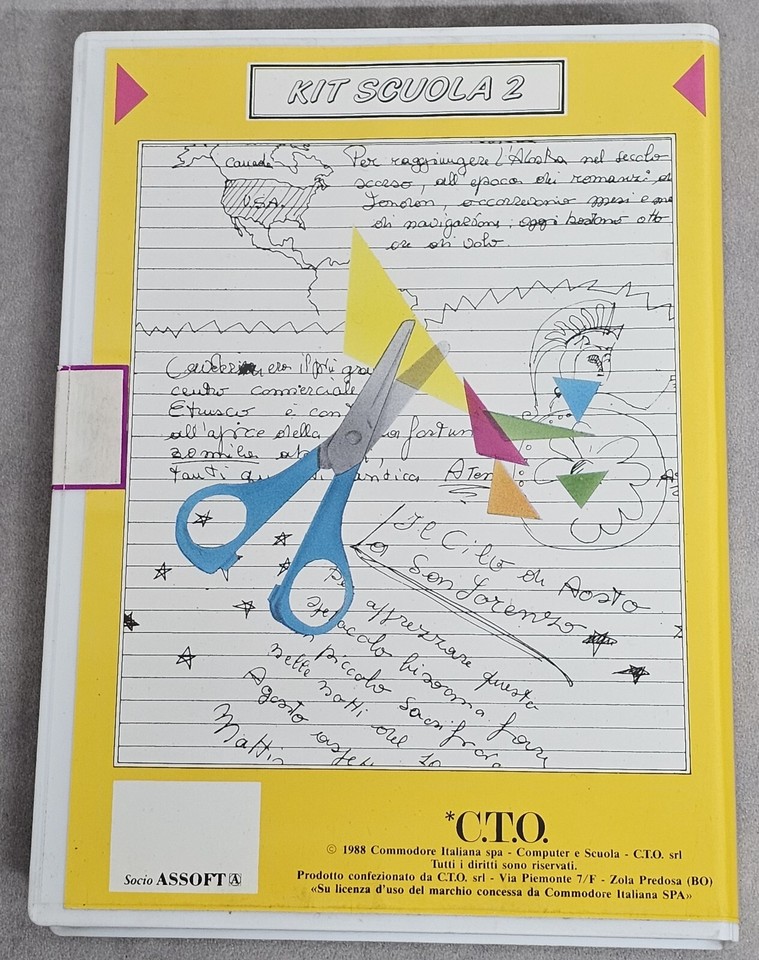 KIT SCUOLA 2
Canada
U.S.A.
Per raggiungere l'Alaska nel secolo
scorso, all'epoca dei romanzi di
London, occorrevano mesi e me
di navigazione; oggi bastano otto
ore di volo.
era il più gra
centro commerciale
Etrusco e con
all'apice della fortun
romike
tanti
Aten
Il Cielo di Agosto
San Lorenzo
Per apprezzare questo
spettacolo bisogna fare
piccolo sacrificio
nelle notti del 10
Agosto
*C.T.O.
© 1988 Commodore Italiana spa - Computer e Scuola - C.T.O. srl
Tutti i diritti sono riservati.
Prodotto confezionato da C.T.O. srl - Via Piemonte 7/F - Zola Predosa (BO)
«Su licenza d'uso del marchio concessa da Commodore Italiana SPA»
Socio ASSOFT A